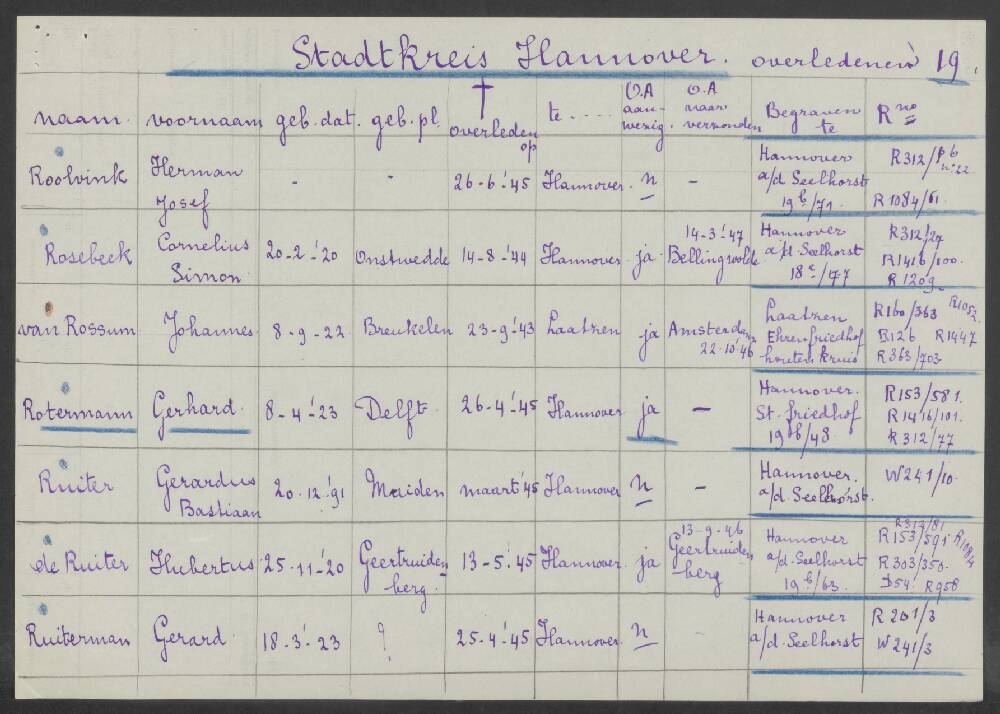 Stadtkreis Hannover. overledenen 19.
naam. voornaam geb. dat. geb. pl. † overleden op te .... O.A aan-wezig. O.A naar verzonden Begraven te R no
Roolvink Herman Josef - - 26-6-'45 Hannover. n - Hannover a/d Seelhorst 19b/71. R312/ R1084/61.
Rosebeek Cornelius Simon 20-2-'20 Onstwedde 14-8-'44 Hannover ja 14-3-'47 Bellingwolde Hannover a/d Seelhorst 18c/77 R312/27 R1416/100. R1209
van Rossum Johannes 8-9-22 Breukelen 23-9-'43 Laatzen ja Amsterdam 22-10-'46 Laatzen Ehrenfriedhof houten kruis R160/363 R1052 B126 R1447 R363/703
Rotermann Gerhard 8-4-'23 Delft 26-4-'45 Hannover ja - Hannover. St. friedhof 19b/48 R153/581. R1416/101. R312/77
Ruiter Gerardus Bastiaan 20.12.'91 Muiden maart '45 Hannover n - Hannover. a/d. Seelhorst. W241/10.
de Ruiter Hubertus 25-11-'20 Geertruidenberg. 13-5-'45 Hannover ja 13-9-46 Geertruidenberg Hannover a/d. Seelhorst 19b/63. R312/81 R153/591 R1084 R303/350. D54 R958
Ruiterman Gerard 18-3-'23 ? 25-4-'45 Hannover n - Hannover a/d. Seelhorst R201/3 W241/3